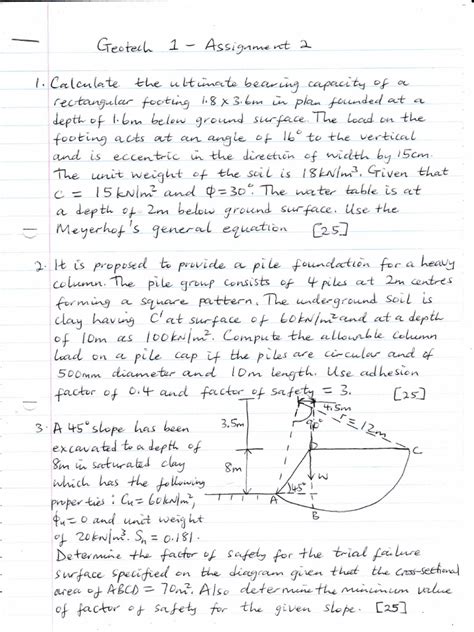 Geotech 1 - Assignment 2
1. Calculate the ultimate bearing capacity of a
rectangular footing 1.8 x 3.6m in plan founded at a
depth of 1.6m below ground surface. The load on the
footing acts at an angle of 16° to the vertical
and is eccentric in the direction of width by 15cm.
The unit weight of the soil is 18kN/m³. Given that
c = 15kN/m² and Φ=30°. The water table is at
a depth of 2m below ground surface. Use the
Meyerhof's general equation [25]
2. It is proposed to provide a pile foundation for a heavy
column. The pile group consists of 4 piles at 2m centres
forming a square pattern. The underground soil is
clay having C' at surface of 60kN/m² and at a depth
of 10m as 100kN/m². Compute the allowable column
load on a pile cap if the piles are circular and of
500mm diameter and 10m length. Use adhesion
factor of 0.4 and factor of safety = 3. [25]
3. A 45° slope has been
excavated to a depth of
8m in saturated clay
which has the following
properties: Cu = 60kN/m²,
φu = 0 and unit weight
of 20kN/m³. Sn = 0.181.
3.5m
4.5m
90°
r = 12m
8m
D
C
W
45°
A
B
Determine the factor of safety for the trial failure
surface specified on the diagram given that the cross-sectional
area of ABCD = 70m². Also determine the minimum value
of factor of safety for the given slope. [25]